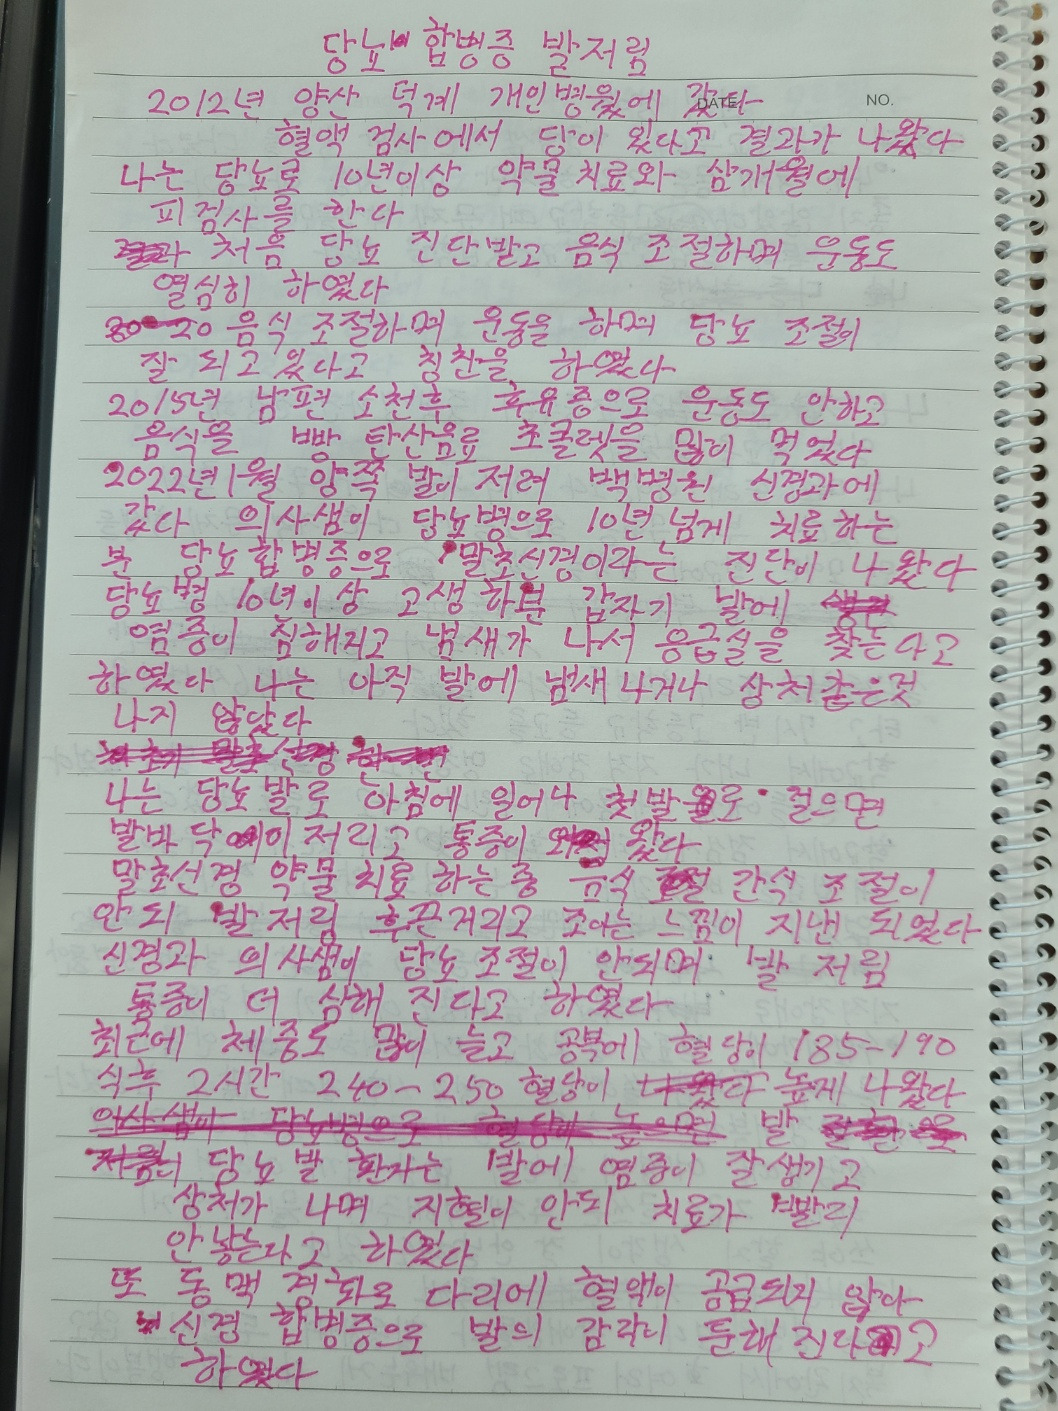 당뇨 합병증 발저림
2012년 양산 덕계 개인병원에 갔다
DATE NO.
혈액 검사에서 당이 있다고 결과가 나왔다
나는 당뇨로 10년이상 약물치료와 삼개월에
피검사를 한다
처음 당뇨 진단받고 음식 조절하며 운동도
열심히 하였다
20 음식 조절하며 운동을 하며 당뇨 조절이
잘 되고 있다고 칭찬을 하였다
2015년 남편 소천후 후유증으로 운동도 안하고
음식을 빵 탄산음료 초콜렛을 많이 먹었다
2022년 1월 양쪽 발이 저려 백병원 신경과에
갔다 의사샘이 당뇨병으로 10년 넘게 치료하는
분 당뇨합병증으로 말초신경이라는 진단이 나왔다
당뇨병 10년이상 고생하분 갑자기 발에
염증이 심해지고 냄새가 나서 응급실을 찾는다고
하였다 나는 아직 발에 냄새나거나 상처같은것
나지 않았다
나는 당뇨발로 아침에 일어나 첫발으로 걸으면
발바닥에이 저리고 통증이 왔다
말초신경 약물치료 하는중 음식 간식 조절이
안되 발저림 후끈거리고 조이는 느낌이 지낸 되었다
신경과 의사샘이 당뇨조절이 안되며 발 저림
통증이 더 심해 진다고 하였다
최근에 체중도 많이 늘고 공복에 혈당이 185-190
식후 2시간 240-250 혈당이 높게 나왔다
발
당뇨발 환자는 발에 염증이 잘생기고
상처가 나며 지혈이 안되 치료가 빨리
안낳는다고 하였다
또 동맥경화로 다리에 혈액이 공급되지 않아
신경 합병증으로 발의 감각이 둔해 진다고
하였다